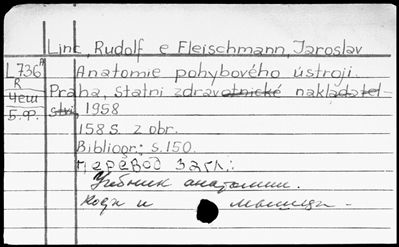 Linc, Rudolf e Fleischmann, Jaroslav
L736A Anatomie pohybového ústrojí.
R Praha, Statni zdravotnické nakladatel-
Чеш stvi, 1958
Б.Ф. 158 s. z obr.
Bibliogr.: s. 150.
перевод загл.:
Учебник анатомии.
Кодр и мышцы.